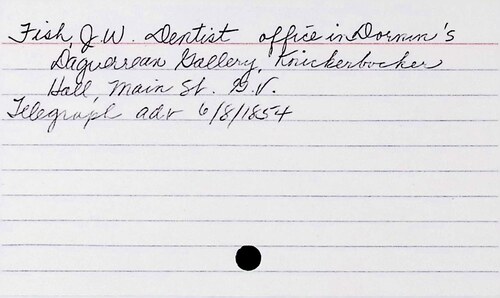 Fish, J.W. Dentist office in Dornin's
Daguerrean Gallery, Knickerbocker
Hall, Main St. G.V.
Telegraph adv 6/8/1854